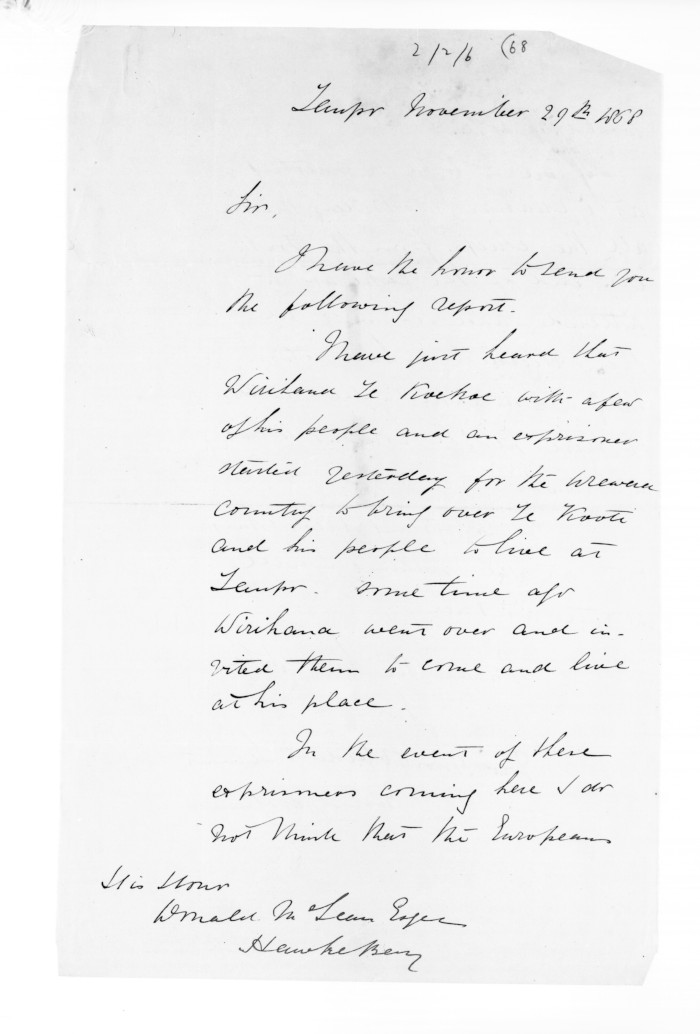 2/2/6 (68
Taupo November 29th 1868
Sir,
I have the honor to send you
the following report.
I have just heard that
Wirihana Te Koekoe with a few
of his people and an exprisoner
started yesterday for the Urewera
country to bring over Te Kooti
and his people to live at
Taupo. some time ago
Wirihana went over and in-
vited them to come and live
at his place.
In the event of these
exprisoners coming here I do
not think that the Europeans
His Honor
Donald McLean Esqre
Hawke Bay